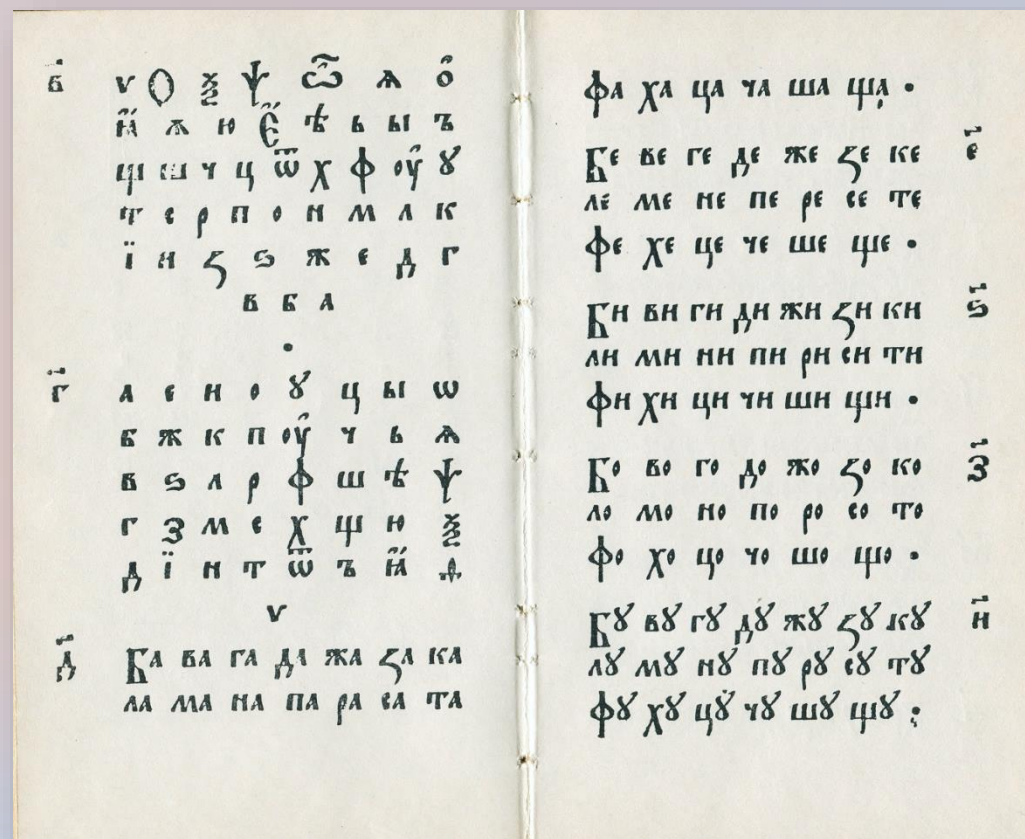 в҃ ѵ Ѳ ѯ ѱ ѽ ѧ о҆
ꙗ҆̈ ѫ ю Є҆̈ ѣ ь ы ъ
щ ш ч ц ѿ х ф оу҆ ꙋ
т с р п о н м л к
ї и ꙁ ѕ ж е д г
в б а
•
г҃ а е и о ꙋ ц ы ѡ
б ж к п оу҆ ч ь ѧ
в ѕ л р ф ш ѣ ѱ
г з м с х щ ю ѯ
д ї н т ѿ ъ ꙗ҆̈ ѳ
ѵ
д҃ Ба ва га да жа ꙁа ка
ла ма на па ра са та
фа ха ца ча ша ща •
Бе ве ге де же ꙁе ке е҃
ле ме не пе ре се те
фе хе це че ше ще •
Би ви ги ди жи ꙁи ки ѕ҃
ли ми ни пи ри си ти
фи хи ци чи ши щи •
Бо во го до жо ꙁо ко з҃
ло мо но по ро со то
фо хо цо чо шо що •
Бꙋ вꙋ гꙋ дꙋ жꙋ ꙁꙋ кꙋ и҃
лꙋ мꙋ нꙋ пꙋ рꙋ сꙋ тꙋ
фꙋ хꙋ цꙋ чꙋ шꙋ щꙋ •